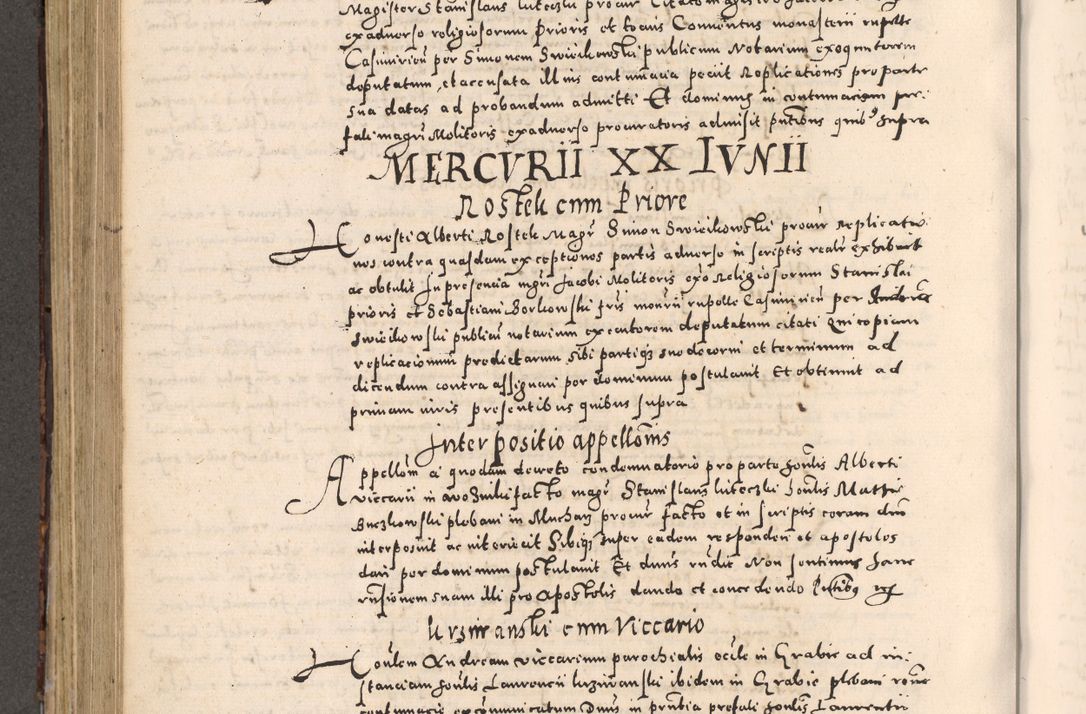 Magister Stanislaus Luteczki procur Citato magistro Jacobo
exadverso religiosorum Prioris et tocius Conventus monasterii rupelle
Casimirien per Simonem Swiecikowski publicum Notarium exequutorem
deputatum, et accusata illius contumacia peciit Replicationes pro parte
sua datas ad probandum admitti Et dominus in contumaciam pre-
fati magri Molitoris exadverso procuratoris admisit pntibus quibus supra
MERCVRII XX IVNII
Rostek cum Priore
Honesti Alberti Rostek Magr Simon Swiecikowski procur replicatio-
nes contra quasdam exceptiones partis adverse in scriptis realr exhibuit
ac obtulit In presencia mgri Jacobi Molitoris exo Religiosorum Stanislai
prioris et Sebastiani Borkowski fris monrii rupelle Casimirien per
Swiecikowski publicu notarium executorem deputatum citati Qui copiam
replicacionum predictarum sibi partiq3 sue decerni et terminum ad
dicendum contra assignari per dominum postulavit Et obtinuit ad
primam iuris presentibus quibus supra
Interpositio appellonis
Appellom a quodam decreto condemnatorio pro parte honlis Alberti
viccarii in facto magr Stanislaus Luteczki honlis Matthie
Buczkowski plebani in Muchary procur facto et in scriptis coram dno
interposuit ac interiecit Sibiq3 super eadem responderi et apostolos
dari per dominum postulavit Et dnus rndit Non sentimus hanc
rnsionem suam illi pro Apostolis dando et concedendo Pntibus
Urzin anski cum Viccario
Honlem Andream viccarium parochialis eccle in Grabie ad in-
stanciam honlis Laurencii ibidem in Grabie plebani
contumacie excommunicatum Dnus in pntia prefati honlis Laurentii